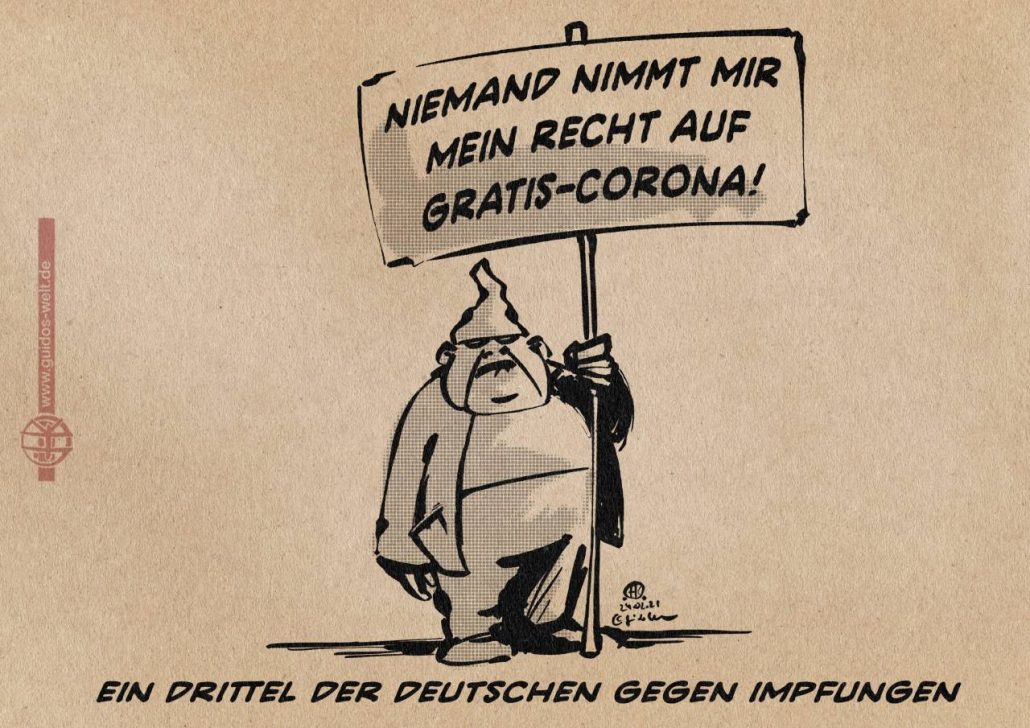 NIEMAND NIMMT MIR
MEIN RECHT AUF
GRATIS-CORONA!
www.guidos-welt.de
24.02.21
EIN DRITTEL DER DEUTSCHEN GEGEN IMPFUNGEN